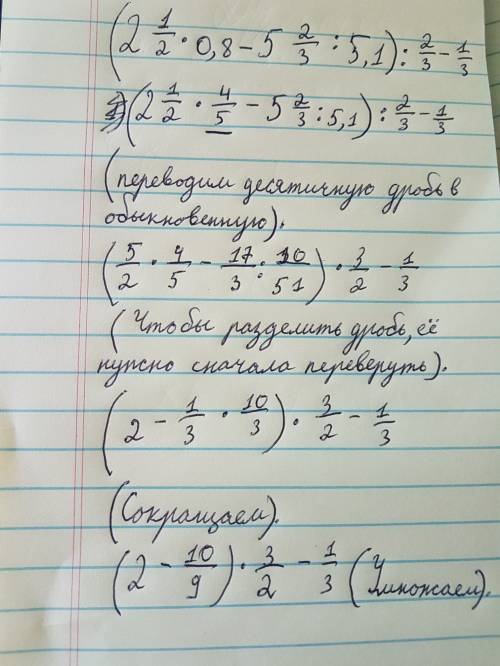 (2 1/2 · 0,8 - 5 2/3 : 5,1) : 2/3 - 1/3
(2 1/2 · 4/5 - 5 2/3 : 5,1) : 2/3 - 1/3
(переводим десятичную дробь в
обыкновенную).
(5/2 · 4/5 - 17/3 · 10/51) · 3/2 - 1/3
(Чтобы разделить дробь, её
нужно сначала перевернуть).
(2 - 1/3 · 10/3) · 3/2 - 1/3
(Сокращаем).
(2 - 10/9) · 3/2 - 1/3 (Умножаем).